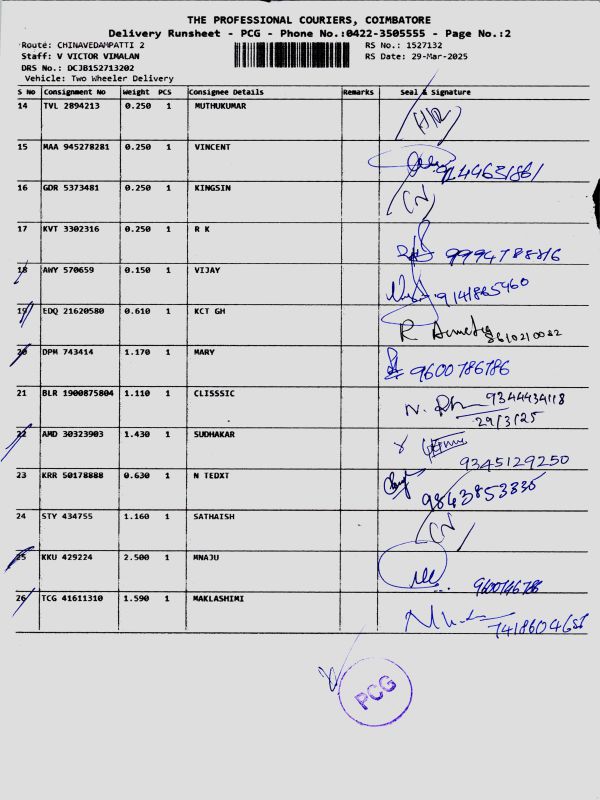 THE PROFESSIONAL COURIERS, COIMBATORE
Delivery Runsheet - PCG - Phone No.:0422-3505555 - Page No.:2
Route: CHINAVEDAMPATTI 2 RS No.: 1527132
Staff: V VICTOR VIMALAN RS Date: 29-Mar-2025
DRS No.: DCJB152713202
Vehicle: Two Wheeler Delivery
S No Consignment No Weight PCS Consignee Details Remarks Seal & Signature
14 TVL 2894213 0.250 1 MUTHUKUMAR
15 MAA 945278281 0.250 1 VINCENT
16 GDR 5373481 0.250 1 KINGSIN
CN
17 KVT 3302316 0.250 1 R K
18 AWY 570659 0.150 1 VIJAY
9141865460
19 EDQ 21620580 0.610 1 KCT GH
R
8610210032
20 DPM 743414 1.170 1 MARY
9600786786
21 BLR 1900875804 1.110 1 CLISSSIC
9344434118
29/3/25
22 AMD 30323903 1.430 1 SUDHAKAR
9345129250
23 KRR 50178888 0.630 1 N TEDXT
9843853335
24 STY 434755 1.160 1 SATHAISH
CN
25 KKU 429224 2.500 1 MNAJU
26 TCG 41611310 1.590 1 MAKLASHIMI
PCG